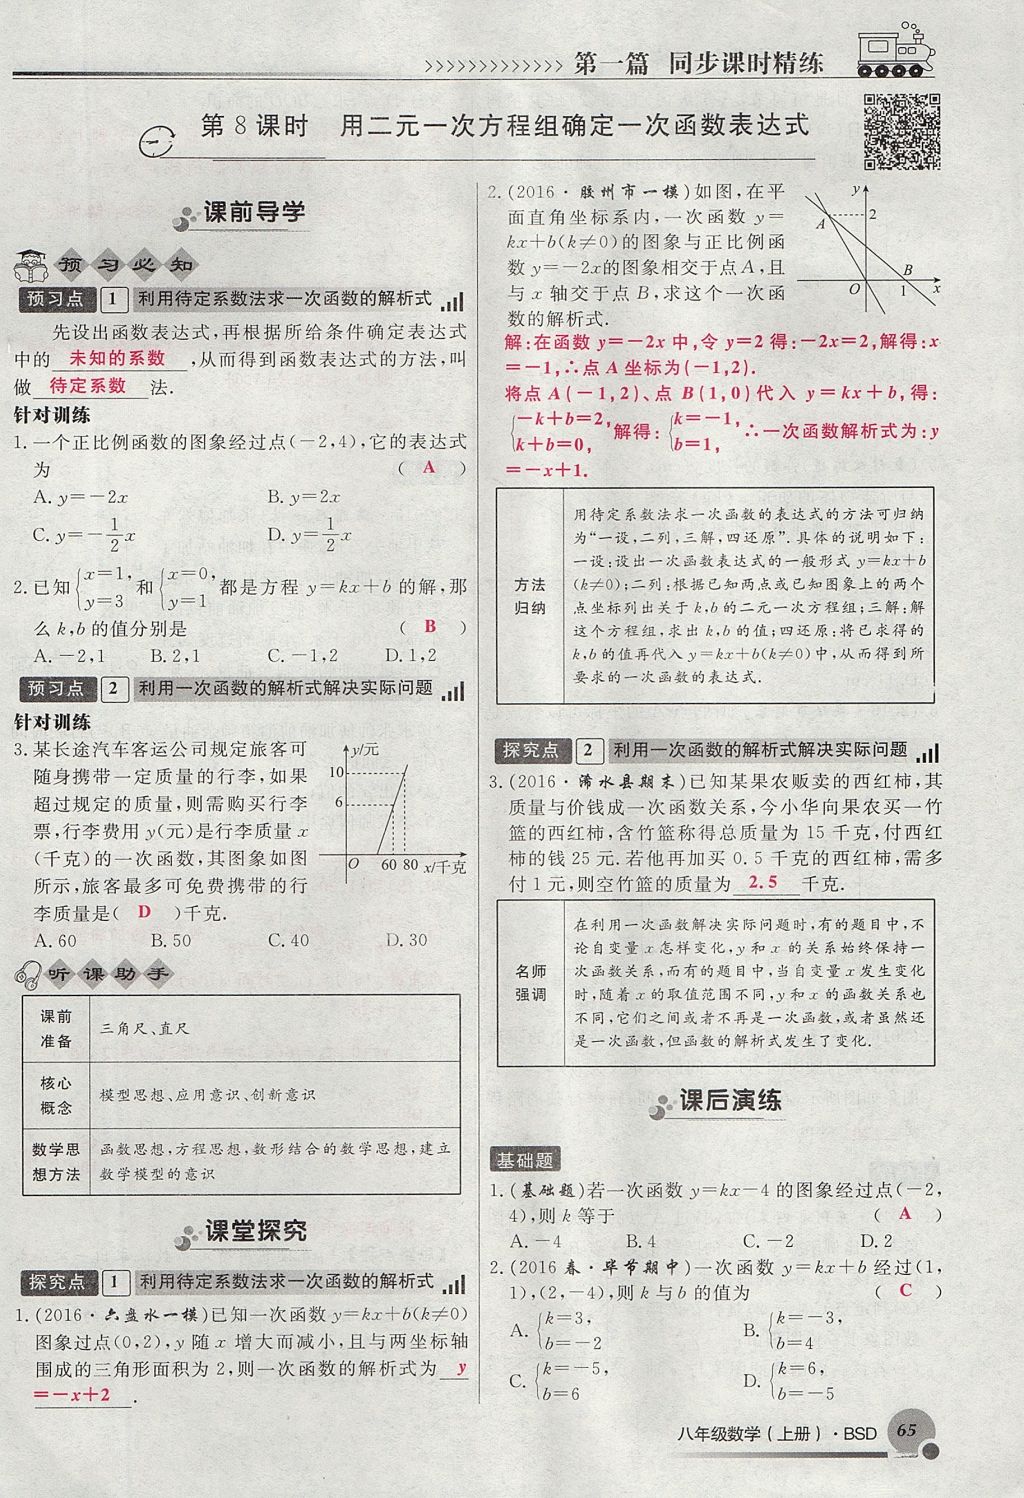 第一篇 同步课时精练
第8课时 用二元一次方程组确定一次函数表达式
课前导学
预习必知
预习点 1 利用待定系数法求一次函数的解析式
先设出函数表达式,再根据所给条件确定表达式
中的 未知的系数 ,从而得到函数表达式的方法,叫
做 待定系数 法.
针对训练
1.一个正比例函数的图象经过点(-2,4),它的表达式
为 ( A )
A.y=-2x B.y=2x
C.y=-1/2x D.y=1/2x
2.已知{x=1, y=3 和{x=0, y=1 都是方程 y=kx+b 的解,那
么 k,b 的值分别是 ( B )
A.-2,1 B.2,1 C.-1,2 D.1,2
预习点 2 利用一次函数的解析式解决实际问题
针对训练
3.某长途汽车客运公司规定旅客可
随身携带一定质量的行李,如果
超过规定的质量,则需购买行李
票,行李费用 y(元)是行李质量 x
(千克)的一次函数,其图象如图
所示,旅客最多可免费携带的行
李质量是( D )千克.
y/元
10
6
O 60 80 x/千克
A.60 B.50 C.40 D.30
听课助手
课前准备 三角尺、直尺
核心概念 模型思想、应用意识、创新意识
数学思想方法 函数思想,方程思想,数形结合的数学思想,建立
数学模型的意识
课堂探究
探究点 1 利用待定系数法求一次函数的解析式
1.(2016·六盘水一模)已知一次函数 y=kx+b(k≠0)
图象过点(0,2),y 随 x 增大而减小,且与两坐标轴
围成的三角形面积为 2,则一次函数的解析式为 y
=-x+2 .
2.(2016·胶州市一模)如图,在平
面直角坐标系内,一次函数 y=
kx+b(k≠0)的图象与正比例函
数 y=-2x的图象相交于点A,且
与 x 轴交于点 B,求这个一次函
数的解析式.
y
2
A
B
O 1 x
解:在函数 y=-2x 中,令 y=2 得:-2x=2,解得:x
=-1,∴点 A 坐标为(-1,2).
将点 A(-1,2)、点 B(1,0)代入 y=kx+b,得:
{-k+b=2, k+b=0, 解得:{k=-1, b=1, ∴一次函数解析式为:y
=-x+1.
方法归纳
用待定系数法求一次函数的表达式的方法可归纳
为“一设,二列,三解,四还原”.具体的说明如下:
一设:设出一次函数表达式的一般形式 y=kx+b
(k≠0);二列:根据已知两点或已知图象上的两个
点坐标列出关于 k,b 的二元一次方程组;三解:解
这个方程组,求出 k,b 的值;四还原:将已求得的
k,b 的值再代入 y=kx+b(k≠0)中,从而得到所
要求的一次函数的表达式.
探究点 2 利用一次函数的解析式解决实际问题
3.(2016·浠水县期末)已知某果农贩卖的西红柿,其
质量与价钱成一次函数关系,今小华向果农买一竹
篮的西红柿,含竹篮称得总质量为 15 千克,付西红
柿的钱 25 元.若他再加买 0.5 千克的西红柿,需多
付1元,则空竹篮的质量为 2.5 千克.
名师强调
在利用一次函数解决实际问题时,有的题目中,不
论自变量 x 怎样变化,y 和 x 的关系始终保持一
次函数关系,而有的题目中,当自变量 x 发生变化
时,随着 x 的取值范围不同,y 和 x 的函数关系也
不同,它们之间或者不再是一次函数,或者虽然还
是一次函数,但函数的解析式发生了变化.
课后演练
基础题
1.(基础题)若一次函数 y=kx-4 的图象经过点(-2,
4),则 k 等于 ( A )
A.-4 B.4 C.-2 D.2
2.(2016 春·毕节期中)一次函数 y=kx+b 经过(1,
1),(2,-4),则 k 与 b 的值为 ( C )
A.{k=3, b=-2 B.{k=-3, b=4
C.{k=-5, b=6 D.{k=6, b=-5
八年级数学(上册)·BSD 65